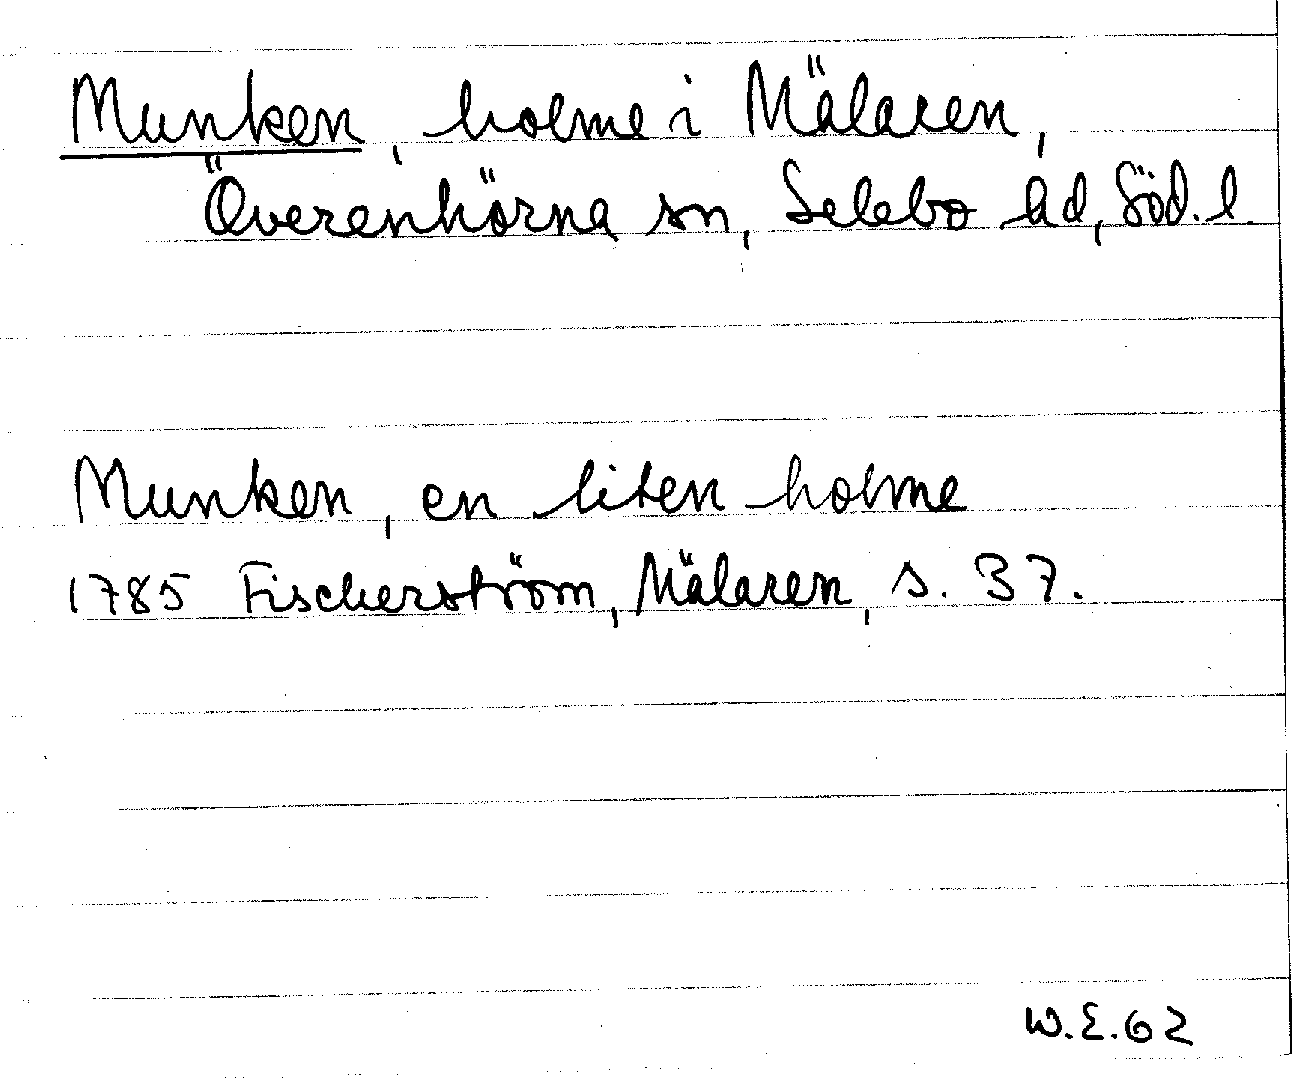 Munken, holme i Mälaren,
Överenhörna sn, Selebo hd, Söd. l.
Munken, en liten holme
1785 Fischerström, Mälaren, s. 37.
W.E.62